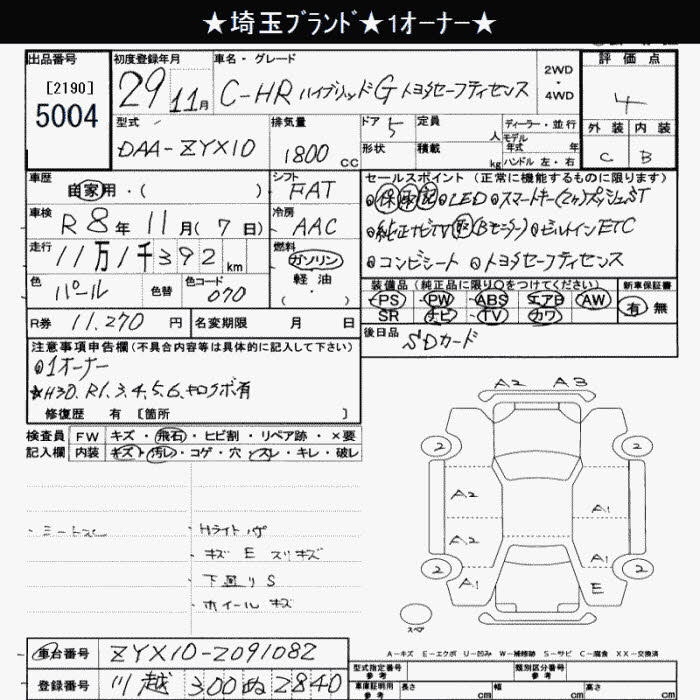 ★埼玉ﾌﾞﾗﾝﾄﾞ★1オーナー★
出品番号
[2190]
5004
初度登録年月
29 11月
車名・グレード
C-HR ハイブリッドG トヨタセーフティセンス
2WD
・
4WD
評価点
4
外装 内装
C B
型式
DAA-ZYX10
排気量
1800 CC
ドア 5
形状
定員 人
積載 kg
ディーラー・並行
モデル年式 年式
ハンドル 左・右
車歴
自家用・( )
シフト
FAT
車検
R 8年 11月(7日)
冷房
AAC
走行
11万1千392 km
燃料
ガソリン
軽油
( ・ )
色
パール
色替
色コード
070
R券 11,270 円
名変期限 月 日
セールスポイント(正常に機能するものに限ります)
保取記 LED スマートキー(2ヶ)プッシュST
純正ナビTV(Bモニター) ビルトインETC
コンビシート トヨタセーフティセンス
装備品(純正品に限り○をつけてください)
PS PW ABS エアB AW
SR ナビ TV カワ
新車保証書
有 無
後日品
SDカード
注意事項申告欄(不具合内容等は具体的に記入して下さい)
1オーナー
★H30、R1、3、4、5、6、キロクボ有
修復歴 有 [箇所 ]
検査員記入欄
FW キズ・飛石・ヒビ割・リペア跡・×要
内装 キズ・汚レ・コゲ・穴・スレ・キレ・破レ
・シートスレ
・Hライト
・キズ E スリキズ
・下廻りS
・ホイールキズ
A2 A3
2 2
A2 A1
A2 A1
A1 E
2 2
スペア
A-キズ E-エクボ U-凹み W-補修跡 S-サビ C-腐食 XX-交換済
車台番号
ZYX10-2091082
登録番号
川越 300 ぬ 2840
型式指定番号
参考
類別区分番号
参考
車庫証明用
参考
長さ cm
幅 cm
高さ cm